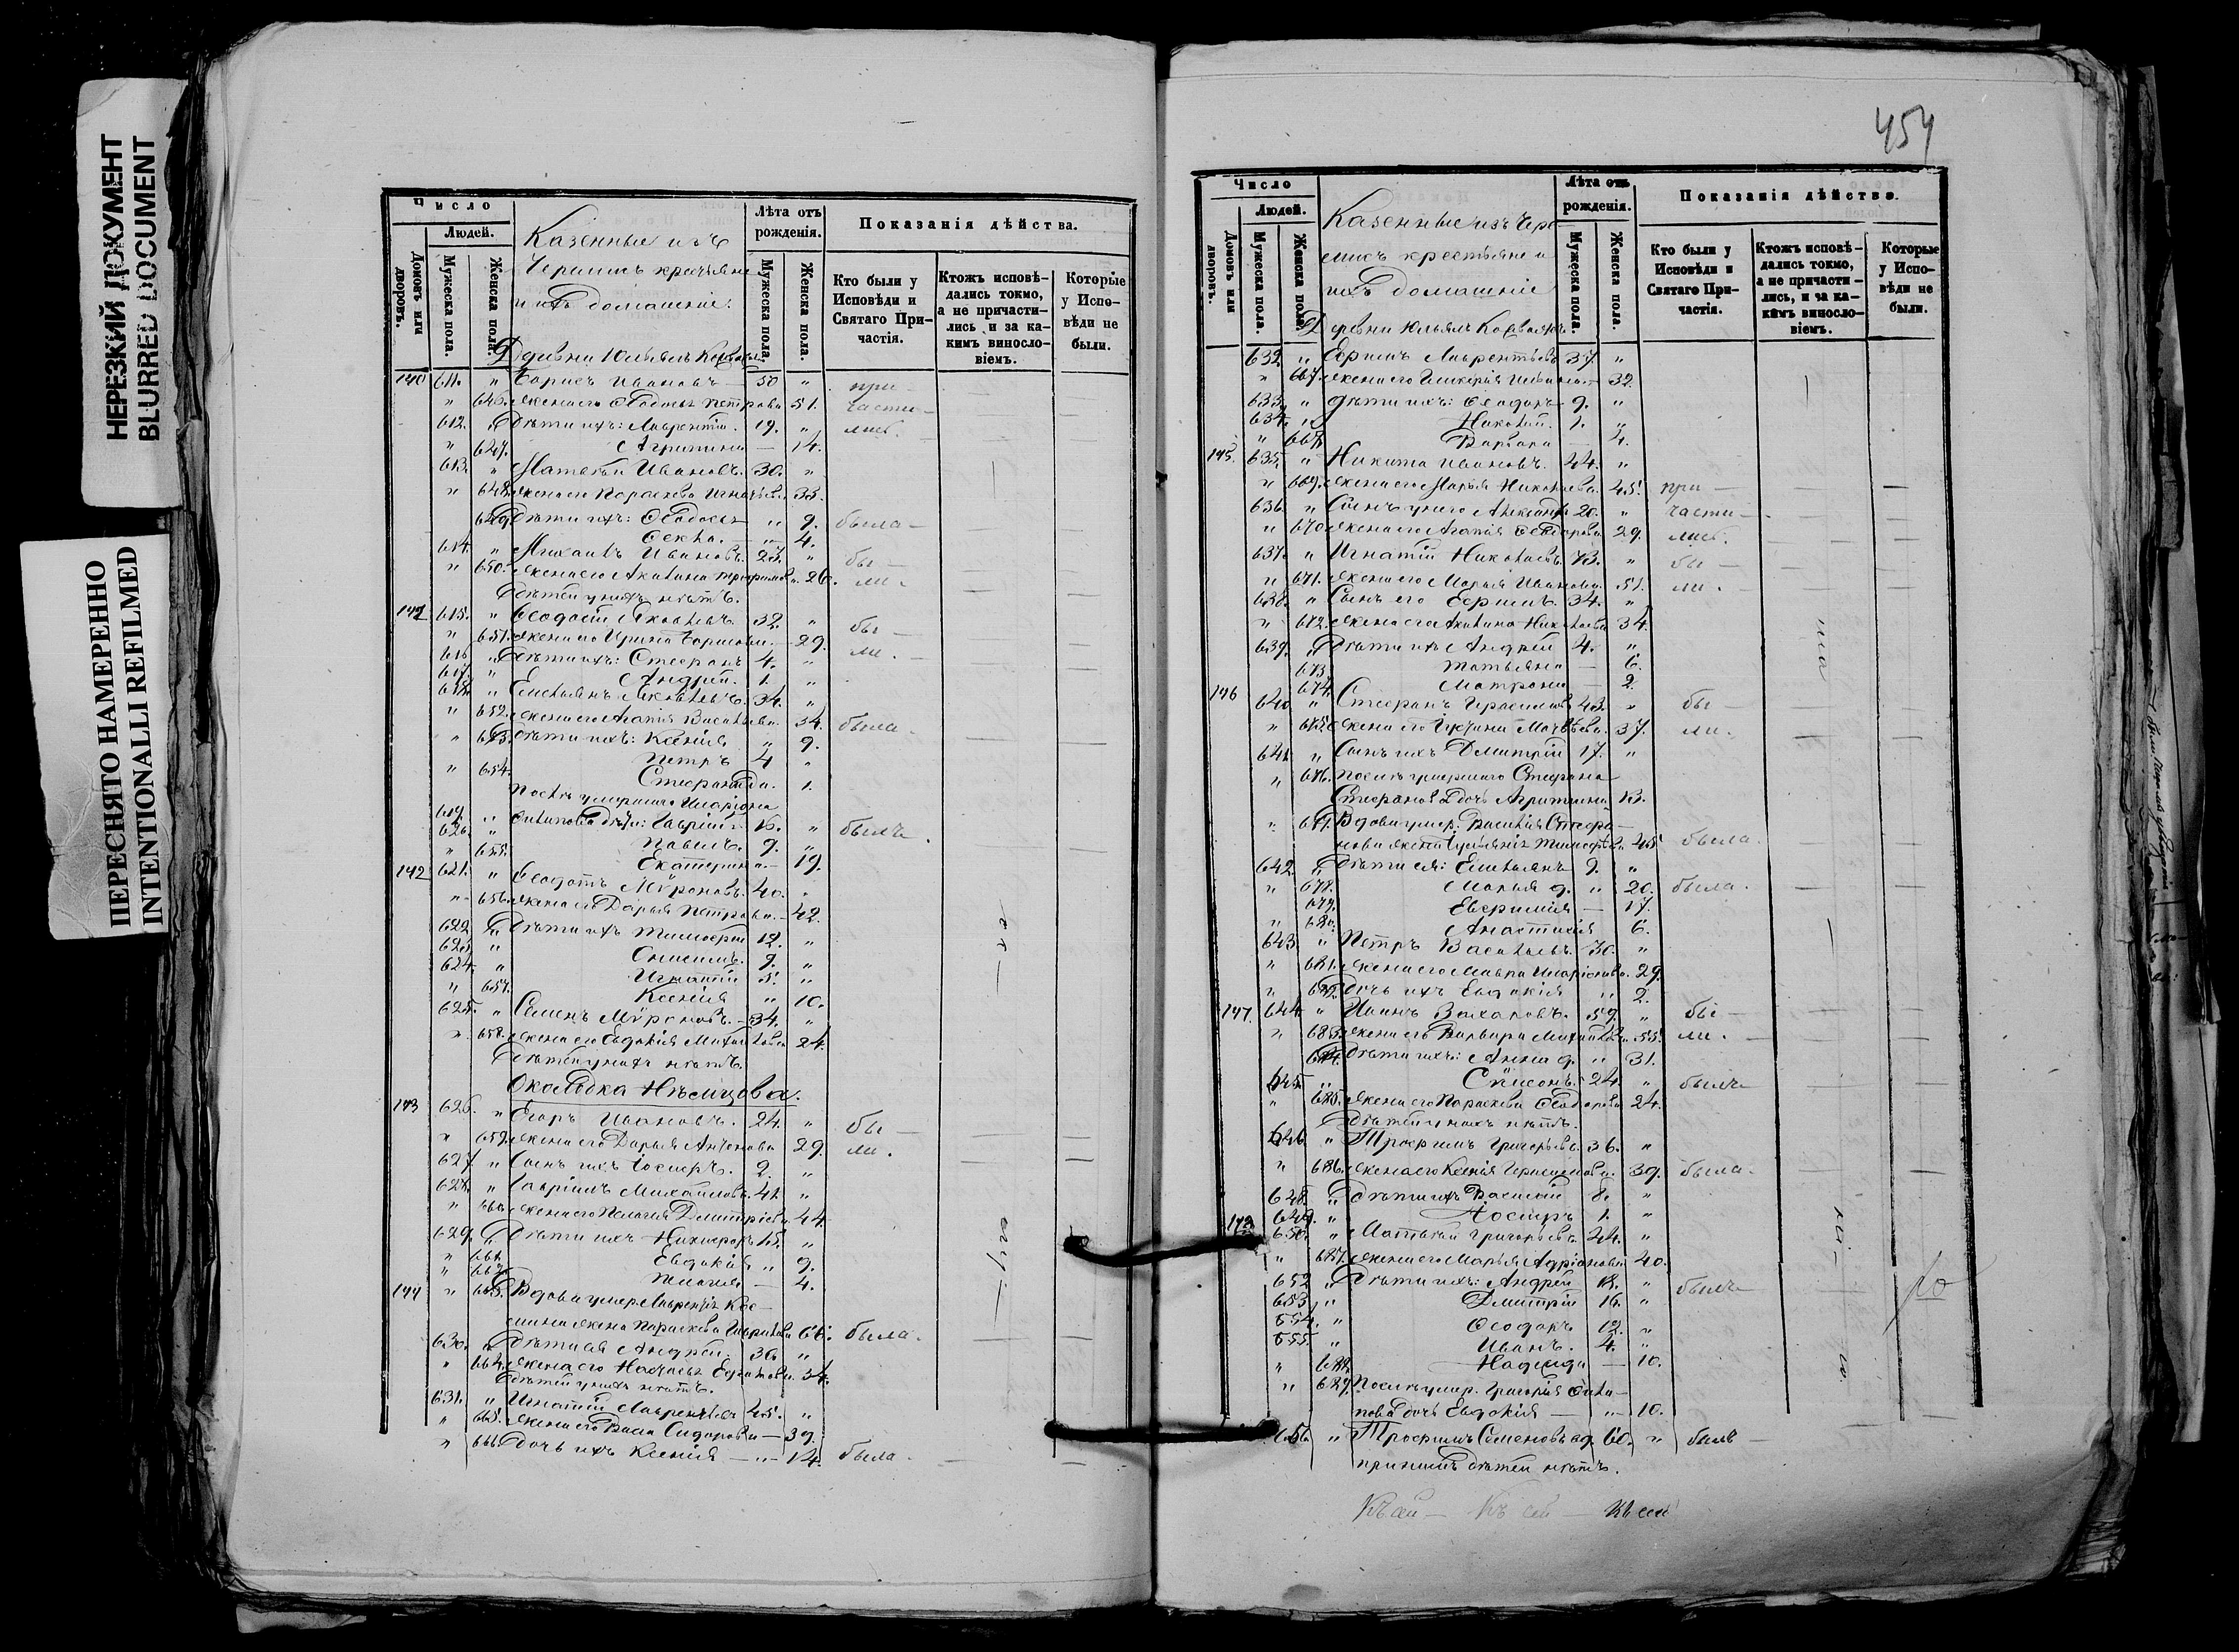 НЕРЕЗКИЙ ДОКУМЕНТ
BLURRED DOCUMENT
ПЕРЕСНЯТО НАМЕРЕННО
INTENTIONALLI REFILMED
Число
Людей.
Домовъ или дворовъ.
Мужеска пола.
Женска пола.
Казенные изъ
Черемисъ крестьяне
и ихъ домашніе.
Лѣта отъ рожденія.
Мужеска пола.
Женска пола.
Показанія дѣйства.
Кто были у Исповѣди и Святаго При-частія.
Ктожъ исповѣ-дались токмо, а не причасти-лись и за ка-кимъ виносло-віемъ.
Которые у Испо-вѣди не были.
140 611. " Борисъ Ивановъ 50 " при-
" 646. жена его Ѳедосья Петрова 51. части-
612. " Дѣти ихъ: Лаврентій. 19. " лис.
" 647. Агрипина — 14.
613. " Матвѣй Ивановъ. 30. "
" 648. жена его Параскева Игнатьева 33.
649. Дѣти ихъ: Ѳедосья " 9. была
Ѳекла. — " 4.
614. " Михаилъ Ивановъ. 27. " бы-
" 650. жена его Акилина Трофимова. 26. ли.
дѣтей у нихъ нѣтъ.
141 615. " Ѳеодосій Яковлевъ 32. " бы-
" 651. жена его Ирина Борисова. — 29. ли.
616 " Дѣти ихъ: Стефанъ 4. "
617. " Андрей. 1. "
618. " Емельянъ Яковлевъ. 34. "
" 652. жена его Агапія Васильева. 34. была.
" 653. Дѣти ихъ: Ксенія " 9.
Петръ 4 "
" 654. Стефанида. 1.
Послѣ умершаго Иларіона
619. " Филипова дѣти: Гавріилъ 16. " былъ.
620. " Павелъ. 9. "
" 655. Екатерина — 19.
142 621. " Ѳеодотъ Мѵроновъ. 40. "
" 656. жена его Дарья Петрова. — 42.
622. " Дѣти ихъ Тимофей 12. "
623. " 9. "
624. " Игнатій 5. "
" 657. Ксенія " 10.
625. " Семенъ Мѵроновъ. 34. "
" 658. жена его Евдокія Михайлова 24.
дѣтей у нихъ нѣтъ.
Околодка Нѣмцова.
143 626. " Егоръ Ивановъ. 24. " бы-
" 659. жена его Дарья Антонова 29. ли.
627. " Сынъ ихъ Іосифъ. 2. "
628. " Гавріилъ Михайловъ. 41. "
" 660. жена его Пелагія Димитріева. 44.
629. " Дѣти ихъ Никифоръ 15. "
" 661. Евдокія " 9.
" 662. — 4.
144 " 663. Вдова умер. Лаврентія Кос-
мина жена Параскева Гаврилова 66. была.
630. " Дѣти ея Андрей. 30. "
" 664. жена его 34.
дѣтей у нихъ нѣтъ.
631. " Игнатій Лаврентьевъ 45. "
" 665. жена его Васса Сидорова — 39.
" 666. Дочь ихъ Ксенія — " — 14. была.
454
Число
Людей.
Домовъ или дворовъ.
Мужеска пола.
Женска пола.
Казенные изъ Чере-
мисъ крестьяне и
ихъ домашніе
Лѣта отъ рожденія.
Мужеска пола.
Женска пола.
Показанія дѣйства.
Кто были у Исповѣди и Святаго При-частія.
Ктожъ исповѣ-дались токмо, а не причасти-лись, и за ка-кимъ виносло-віемъ.
Которые у Испо-вѣди не были.
632. " Ефримъ Лаврентьевъ 37. "
" 667. жена его Гликерія Иванова. 32.
633. " Дѣти ихъ: Ѳеодоръ 9. "
634. " Николай. 1. "
" 668. Варвара — 4.
145. 635. " Никита Ивановъ. 44. "
" 669. жена его Марья Николаева. 45. при —
636. " Сынъ у него Александръ 20. " части —
" 670 жена его Агапія Ѳедорова 29. лис.
637. " Игнатій Николаевъ. 73. " бы —
" 671. жена его Марья Иванова. 51. ли.
638. " Сынъ его Ефримъ. 34. "
" 672. жена его Акилина Николаева 34.
639. " Дѣти ихъ Андрей 4. "
673. Татьяна — 6.
674. Матрона — 2.
146 640. " Стефанъ Герасимовъ 43. " бы —
" 675. жена его Матвѣева. 37. ли.
641. " Сынъ ихъ Дмитрій 17. "
" 676. Послѣ умершаго Стефана
Стефанова дочь Агрипина 13.
" 677. Вдова умер. Василія Стефа-
нова жена Тимофеева. 45 была.
642. " Дѣти ея: Емельянъ 9. "
" 678. Марья д. " 20. была.
679. Евфимія — 17.
" 680. Анастасія 6.
643. " Петръ Васильевъ. 30. "
" 681. жена его Мавра Иларіонова. 29.
" 682. дочь ихъ Евдокія " 2.
147. 644. " Иванъ Захаровъ. 59. " бы —
" 683. жена его Варвара Михайлова. 55. ли.
684. Дѣти ихъ: Анна д. " 31.
645. 24. " былъ
" 685. жена его Параскева Ѳедорова 24.
дѣтей у нихъ нѣтъ.
646. " Трофимъ Григорьевъ. 36. "
" 686. жена его Ксенія Герасимова. 39. была.
648. " Дѣти ихъ Василій 8. "
649. " Іосифъ 1. "
650. " Матвѣй Григорьевъ 44. "
" 687. жена его Марья Адріанова 40.
652 " Дѣти ихъ: Андрей 18. " былъ
653 " Дмитрій 16. "
654. " Ѳеодоръ 12. "
655. " Иванъ. 4. "
" 688. Надежда — 10.
" 689. Послѣ умер. Григорія Фили-
пова дочь Евдокія — " 10.
656. " Трофимъ Семеновъ вд. 60. " былъ —
при немъ дѣтей нѣтъ.